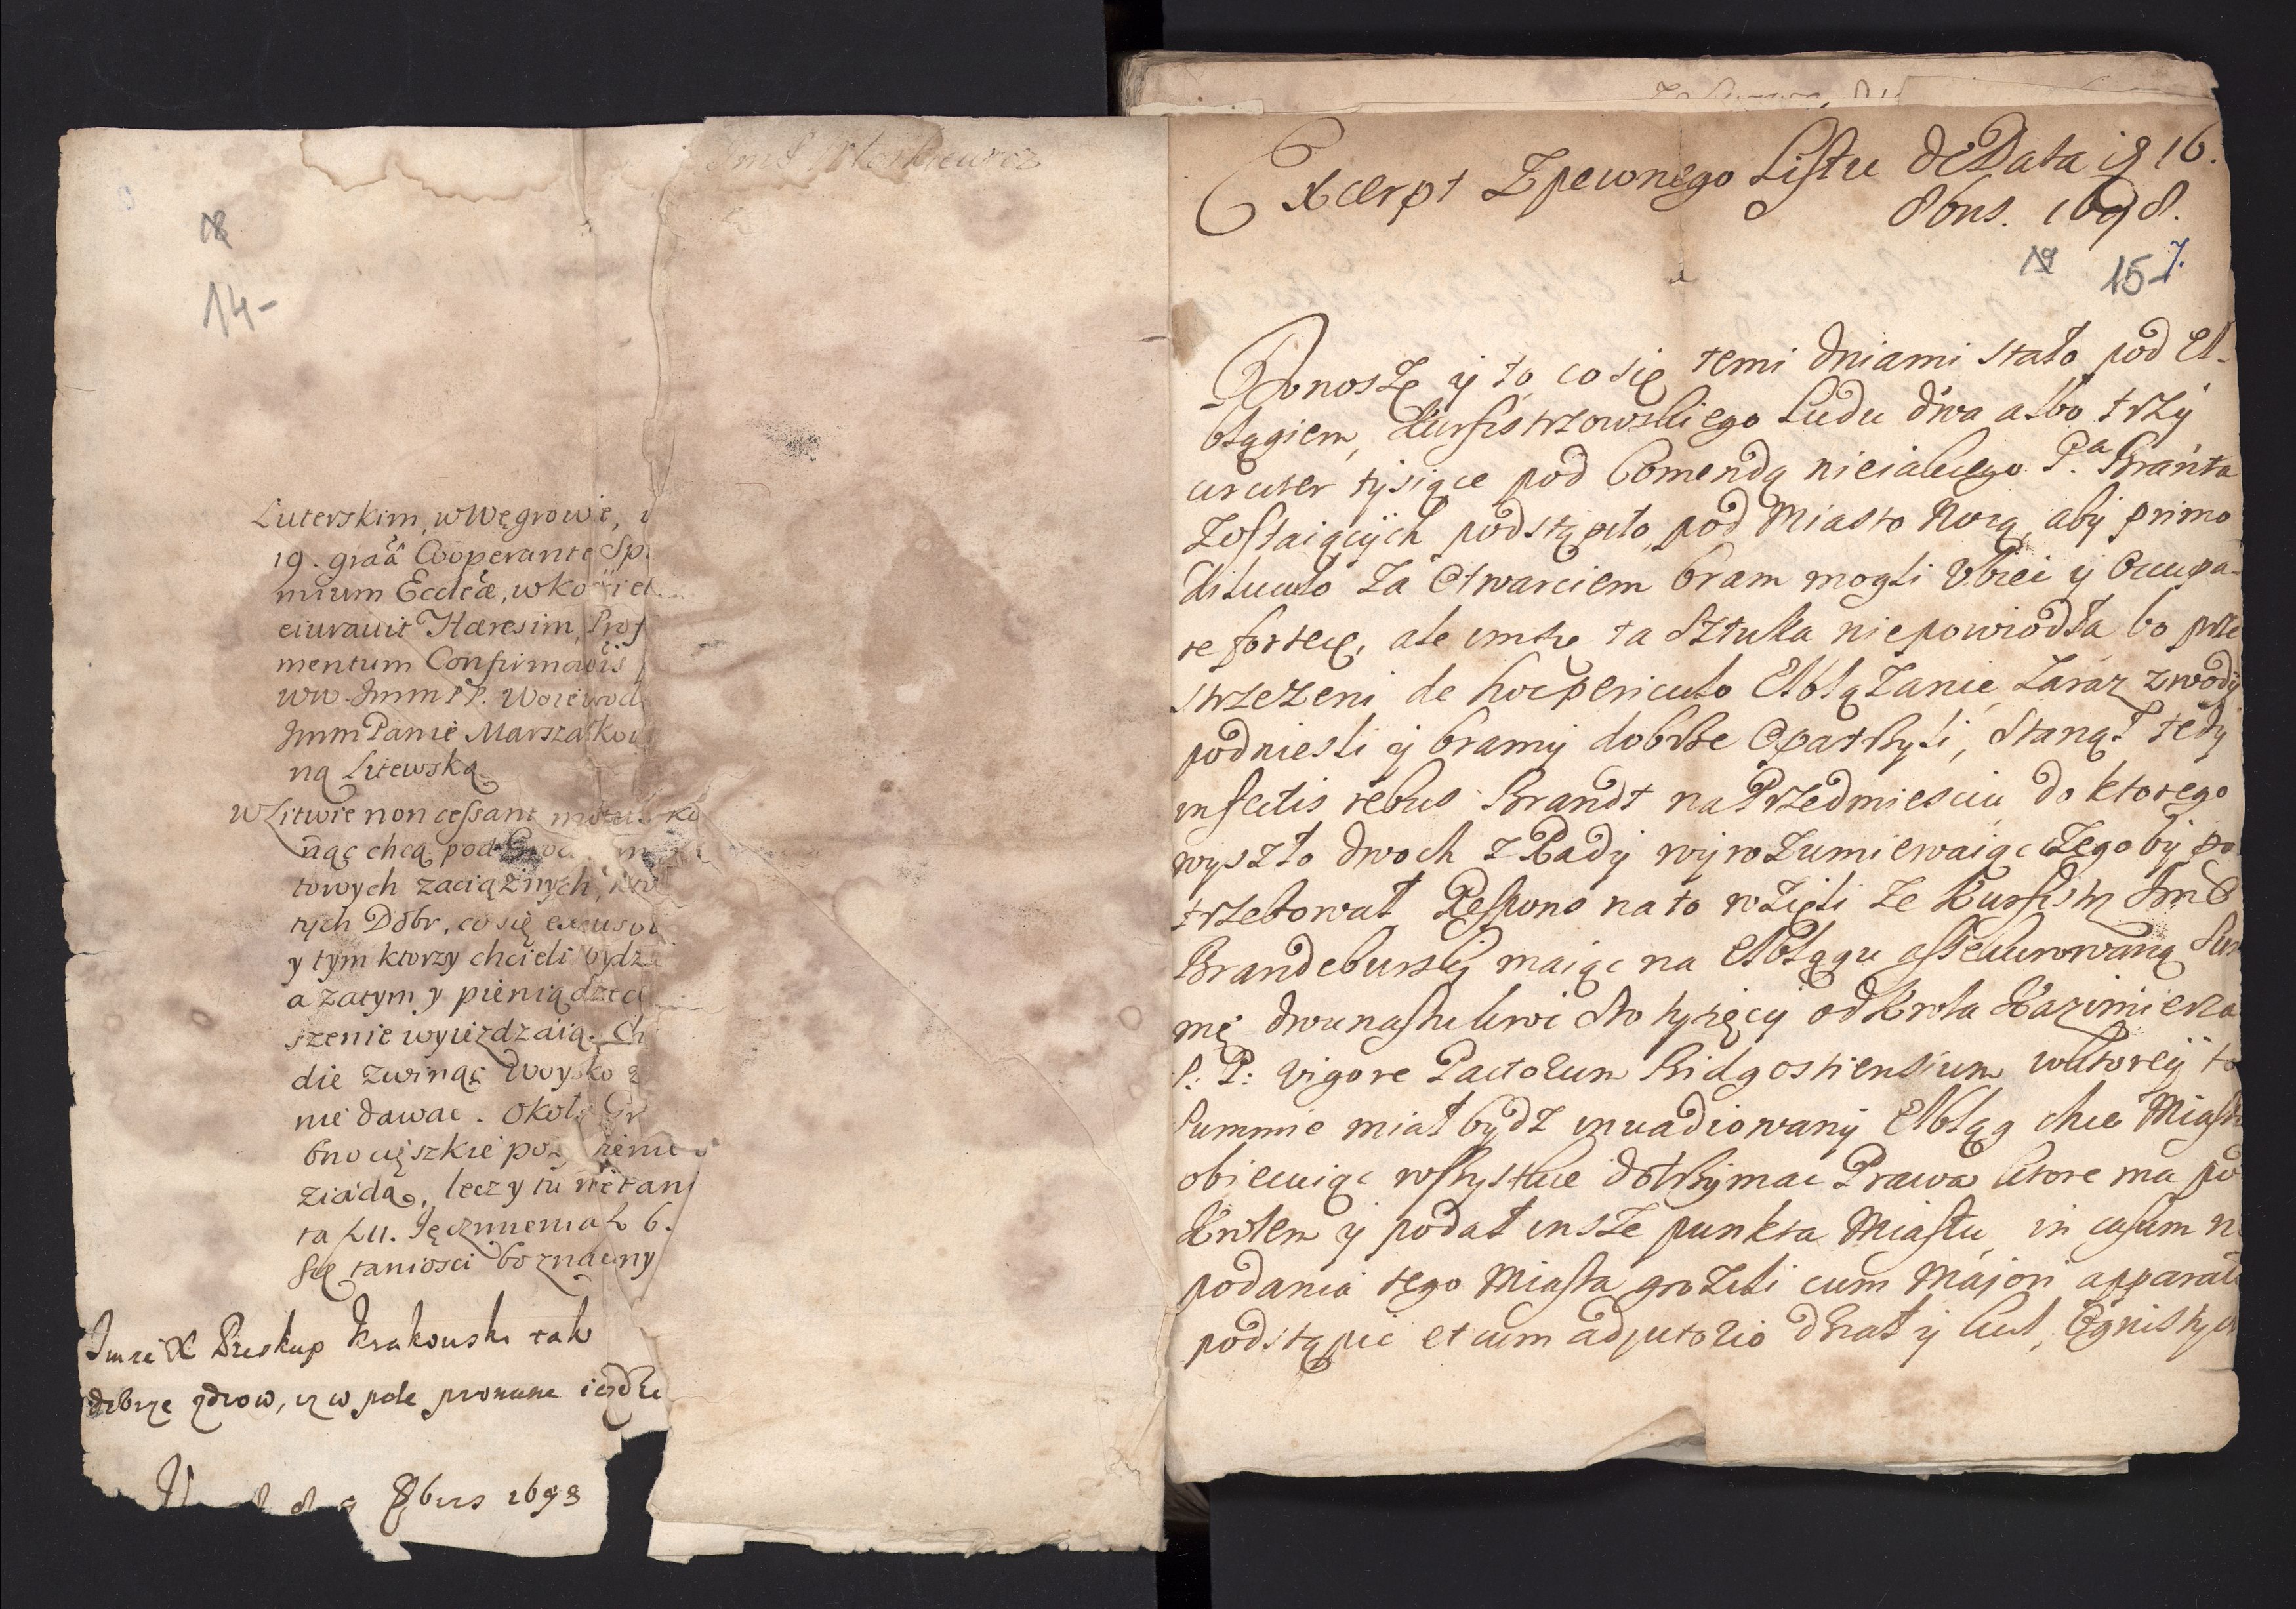 18
14-
Luterskim, w Węgrowie,
19. graã Cooperante Sp
mium Eccleæ, w ko
eiuravit Hæresim, Prof
mentum Confirmaõis
ww. Jmm PP. Woiewod
Jmm Panie Marszałkow
ną Litewską
W Litwie non cessant motus
nąc chcą pod
towych zaciążnych,
tych Dobr, co się
y tym ktorzy chcieli bydz
a zatym y pieniądze
szenie wyiezdzaią. Ch
die zwinąć Woysko
nie dawac. Około Gr
bno cięszkie
ziadą, lecz y tu nie tan
ta zł 11. Jęczmienia zł 6.
się taniosci boznaczny
Jmści X Bieskup Krakowski tak
dobrze zdrow, iz w pole
8bris 1698
Excerpt z pewnego Listu de Data 16.
8bris. 1698.
19 15- 7.
Donoszę y to, co się temi dniami stało pod El-
blągiem, Kurfistrzowskiego Ludu dwa albo trzy
circiter tysiące pod Comendą nieiakiego P.ª Branta
zostaiących podstąpiło pod Miasto Nocą, aby primo
diluculo za Otwarciem bram mogli Ubiec y Occupa-
re fortecę, ale im się ta Sztuka niepowiodła bo prze
strzezeni de hoc periculo Elblązanie, zaraz zwody
podniesli y bramy dobrze Opatrzyli, Stanął tedy
infectis rebus Brandt na Przedmiesciu, do ktorego
wyszło dwoch z Rady wyrozumiewaiąc czego by po
trzebował Respons na to wzięli ze Kurfistrz Jmć
Brandeburski maiąc na Elblągu assekurowaną Sum
mę dwunastukroć sto tysięcy od Krola Kazimierza
S: P: vigore Pactorum Bidgostiensium w ktorey to
Summie miał bydz inuadiowany Elbląg chce Miasto
obiecuiąc wszystkie dotrzymac Prawa ktore ma pod
Krolem y podał insze punkta Miastu, in casum nie
podania tego Miasta grozili cum Majori apparatu
podstąpic et cum adjutorio dział y kul, Ognistych